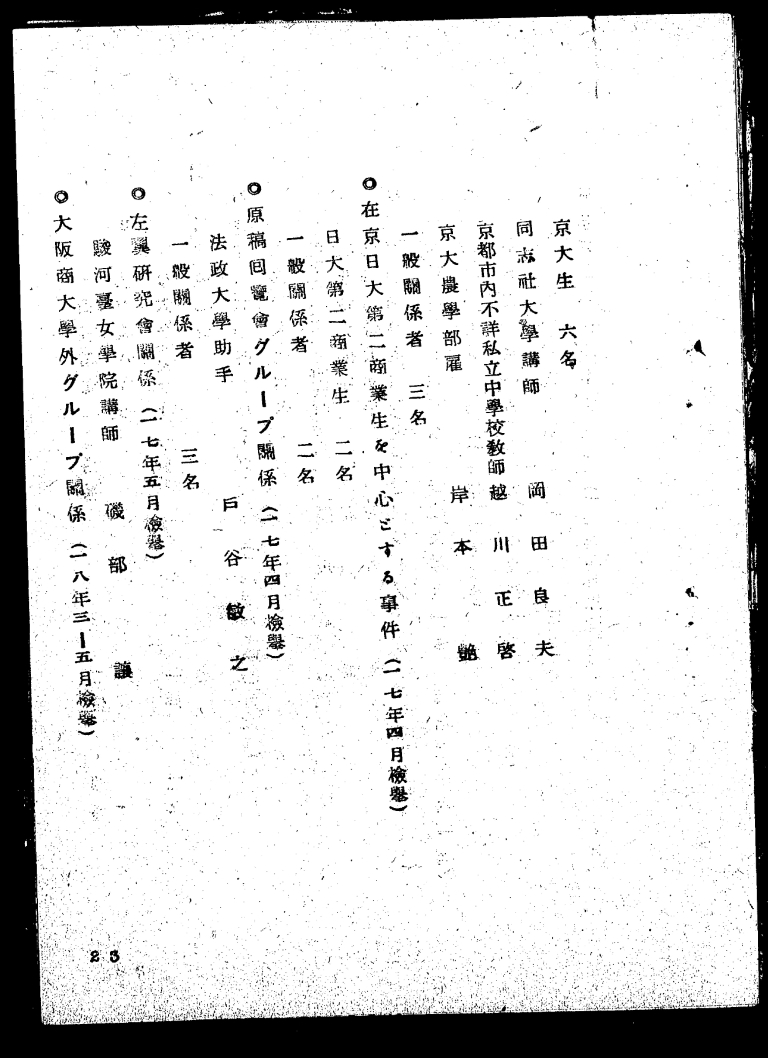 京大生　六名
同志社大學講師　岡田良夫
京都市内不詳私立中學校教師　越川正啓
京大農學部雇　岸本艶
一般關係者　三名
◎在京日大第二商業生を中心とする事件（一七年四月檢擧）
日大第二商業生　二名
一般關係者　二名
◎原稿回覽會グループ關係（一七年四月檢擧）
法政大學助手　戸谷敏之
一般關係者　三名
◎左翼研究會關係（一七年五月檢擧）
駿河臺女學院講師　磯部讓
◎大阪商大學外グループ關係（一八年三―五月檢擧）
23